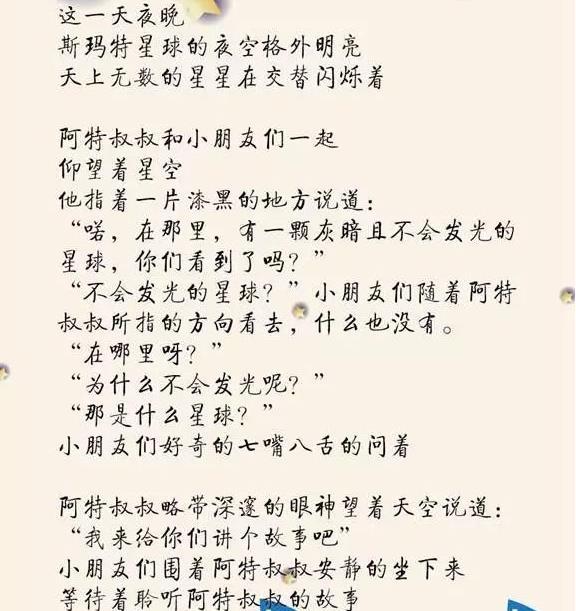 这一天夜晚
斯玛特星球的夜空格外明亮
天上无数的星星在交替闪烁着
阿特叔叔和小朋友们一起
仰望着星空
他指着一片漆黑的地方说道：
“喏，在那里，有一颗灰暗且不会发光的
星球，你们看到了吗？”
“不会发光的星球？”小朋友们随着阿特
叔叔所指的方向看去，什么也没有。
“在哪里呀？”
“为什么不会发光呢？”
“那是什么星球？”
小朋友们好奇的七嘴八舌的问着
阿特叔叔略带深邃的眼神望着天空说道：
“我来给你们讲个故事吧”
小朋友们围着阿特叔叔安静的坐下来
等待着聆听阿特叔叔的故事